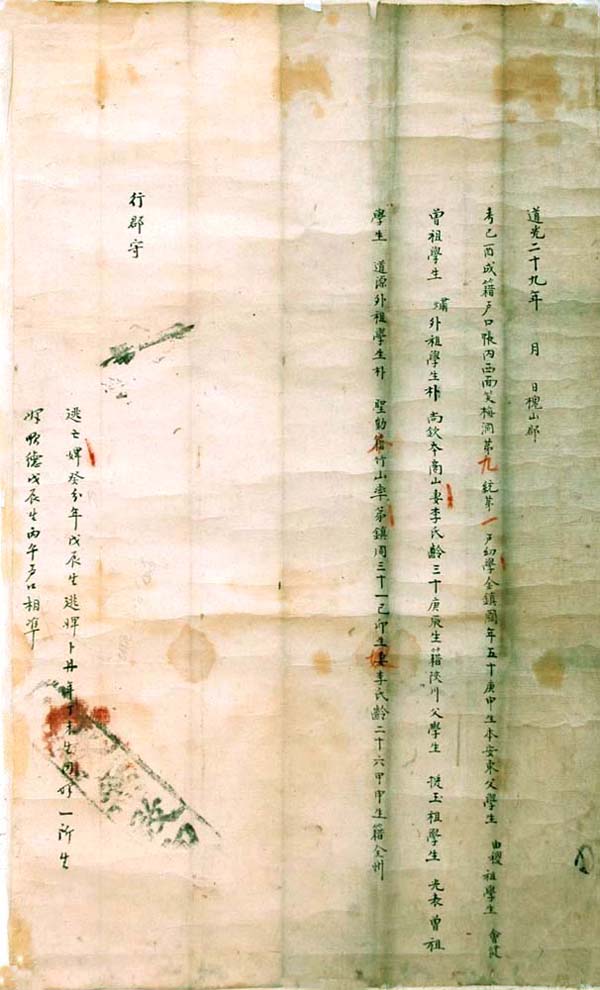 道光二十九年 月 日槐山郡
考己酉成籍戶口帳內西面笑梅洞第九統第一戶幼學金鎭國年五十庚申生本安東父學生 由稷 祖學生 會健
曾祖學生 㻗 外祖學生朴 尙欽本商山妻李氏齡三十庚辰生籍陜川父學生 挺玉祖學生 光表曾祖
學生 道源外祖學生朴 聖勳籍竹山率弟鎭周三十一己卯生妻李氏齡二十六甲申生籍全州
逃亡婢癸分年戊辰生逃婢卜丹年 未生 一所生
婢 德戊辰生丙午戶口相準
行郡守